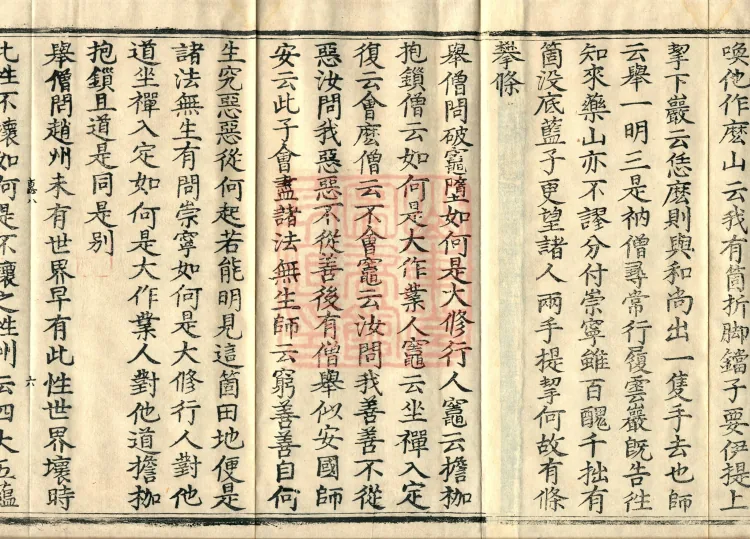 喚他作麽山云我有箇折脚鐺子要伊提上
挈下巖云恁麽則與和尚出一隻手去也師
云舉一明三是衲僧尋常行履雲巖旣告徃
知來藥山亦不謬分付崇寧雖百醜千拙有
箇没底藍子更望諸人兩手提挈何故有條
攀條
舉僧問破竈墮如何是大修行人竈云擔枷
抱鎖僧云如何是大作業人竈云坐禪入定
復云會麽僧云不會竈云汝問我善善不從
惡汝問我惡惡不從善後有僧舉似安國師
安云此子會盡諸法無生師云窮善善自何
生究惡惡從何起若能明見這箇田地便是
諸法無生有問崇寧如何是大修行人對他
道坐禪入定如何是大作業人對他道擔枷
抱鎖且道是同是別
舉僧問趙州未有世界早有此性世界壞時
八 六
此性不壞如何是不壞之性州云四大五蘊